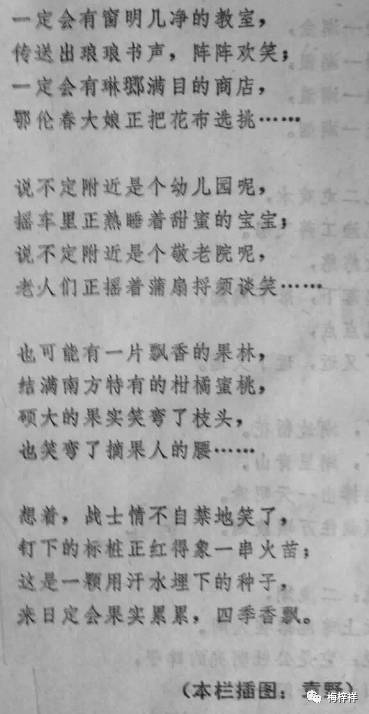 一定会有窗明几净的教室，
传送出琅琅书声，阵阵欢笑；
一定会有琳瑯满目的商店，
鄂伦春大娘正把花布选挑……
说不定附近是个幼儿园呢，
摇车里正熟睡着甜蜜的宝宝；
说不定附近是个敬老院呢，
老人们正摇着蒲扇捋须谈笑……
也可能有一片飘香的果林，
结满南方特有的柑橘蜜桃，
硕大的果实笑弯了枝头，
也笑弯了摘果人的腰……
想着，战士情不自禁地笑了，
钉下的标桩正红得象一串火苗；
这是一颗用汗水埋下的种子，
来日定会果实累累，四季香飘。
（本栏插图：袁野）
梅梓祥